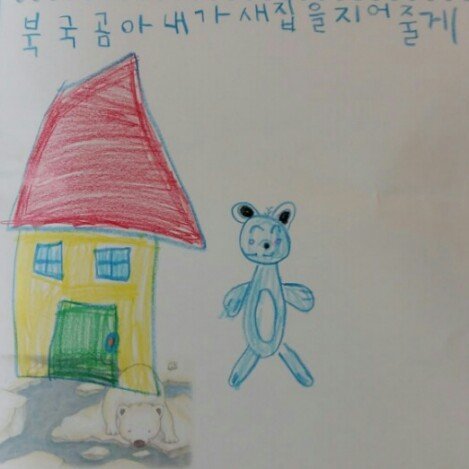 북국곰아내가새집을지어줄게